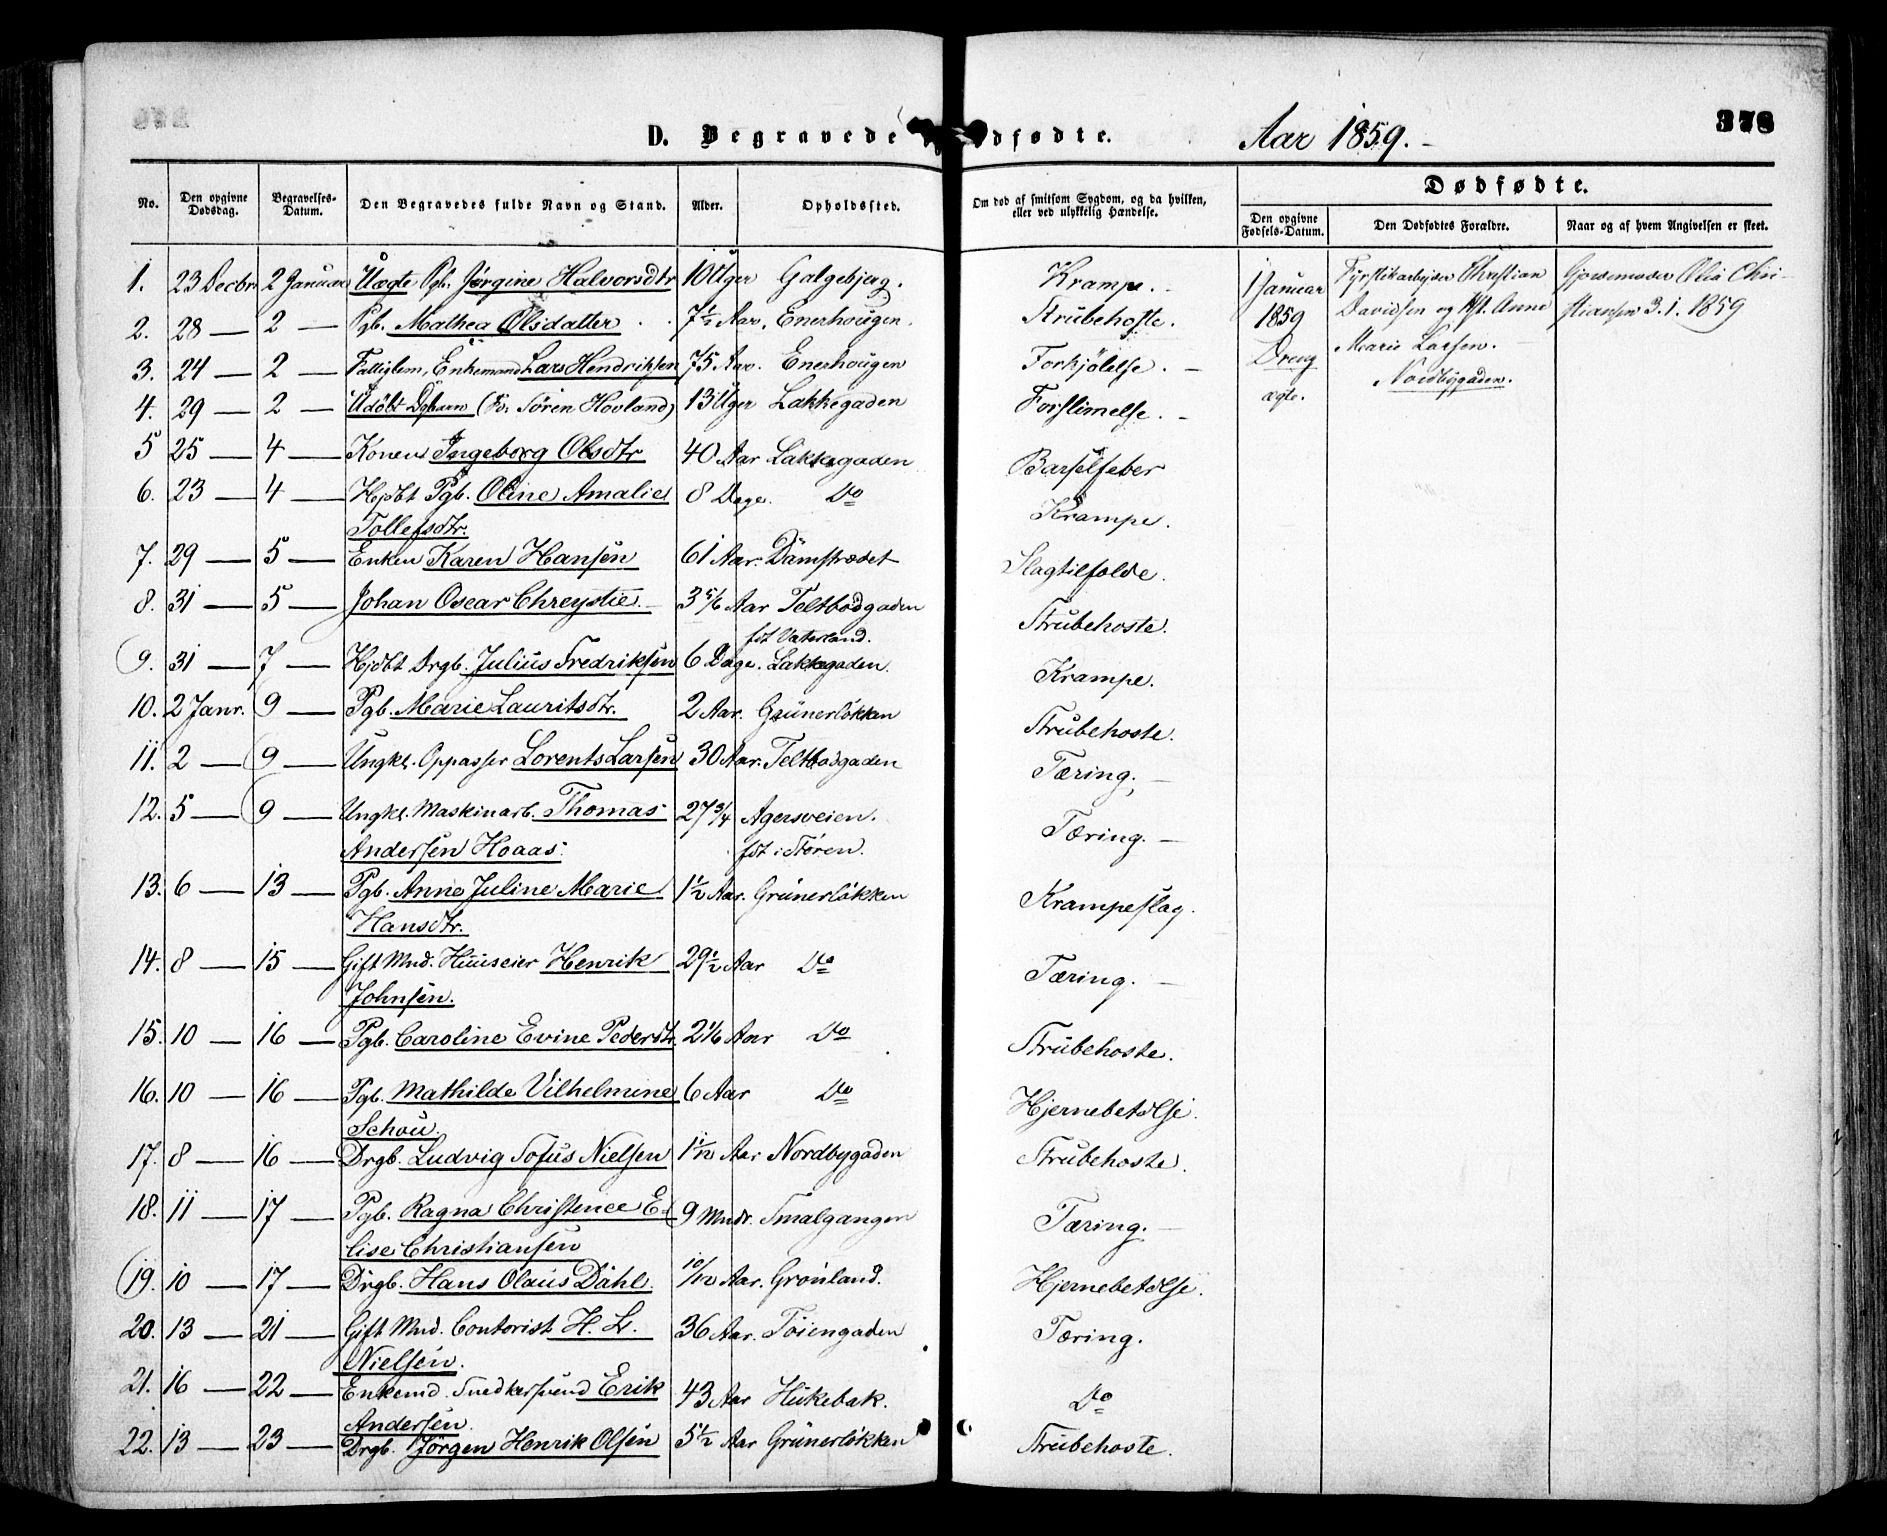 378
D. Begravede
dfødte.
Aar 1859.-
No.
Den opgivne Dødsdag.
Begravelses-Datum.
Den Begravedes fulde Navn og Stand.
Alder.
Opholdssted.
Om død af smitsom Sygdom, og da hvilken, eller ved ulykkelig Hændelse.
Dødfødte.
Den opgivne Fødsels-Datum.
Den Dødfødtes Forældre.
Naar og af hvem Angivelsen er skeet.
1. 23 Decbr 2 Januar Uægte Pgb. Jørgine Halvorsdtr 10 Uger Galgebjerg. Krampe.-
2. 28 — 2 — Pgb. Mathea Olsdatter 7 1/2 Aar. Enerhougen. Strubehoste.
3. 24 — 2 — Fattiglem, Enkemand Lars Hendriksen 75 Aar. Enerhougen Forkjølelse.-
4. 29 — 2 — Udøbt Dgbarn (F. Søren Hovland) 13 Uger Lakkegaden Forslimelse.-
5 25 — 4 — Konen Ingeborg Olsdtr 40 Aar Lakkegaden Barselfeber
6. 23 — 4 — Hjdbt Pgb. Oline Amalie 8 Dage. Do Krampe.
Tollefsdtr.
7. 29 — 5 — Enken Karen Hansen 61 Aar. Damstrædet Slagtilfælde.
8. 31 — 5 — Johan Oscar Chreystie. 3 5/6 Aar Teltbodgaden Strubehoste.
fdt Vaterland.
9. 31 — 7 — Hjdbt Drgb. Julius Fredriksen 6 Dage. Lakkegaden. Krampe.
10. 2 Janr. 9 — Pgb. Marie Lauritsdtr. 2 Aar. Grünerløkken Strubehoste.
11. 2 — 9 — Ungkl. Oppasser Lorents Larsen 30 Aar. Teltbodgaden Tæring.-
12. 5 — 9 — Ungkl. Maskinarb. Thomas 27 3/4 Agersveien. Tæring.-
Andersen Hoaas. fdt i Støren.
13. 6 — 13 — Pgb. Anne Juline Marie 1 1/2 Aar. Grünerløkken Krampeslag.
Hansdtr.
14. 8 — 15 — Gift Mnd. Huuseier Henrik 29 1/2 Aar Do Tæring.-
Johnsen.
15. 10 — 16 — Pgb. Caroline Evine Pedersdtr. 2 1/6 Aar Do Strubehoste.
16. 10 — 16 — Pgb. Mathilde Vilhelmine 6 Aar Do Hjernebetdlse.
Schou.
17. 8 — 16 — Drgb. Ludvig Sofus Nielsen 1 1/12 Aar Nordbygaden Strubehoste.
18. 11 — 17 — Pgb. Ragna Christence E- 9 Mndr. Smalgangen Tæring.-
lise Christiansen
19. 10 — 17 — Drgb. Hans Olaus Dahl. 10/12 Aar. Grønland. Hjernebetdlse.
20. 13 — 21 — Gift Mnd. Contorist H. L. 36 Aar. Tøiengaden Tæring.
Nielsen.
21. 16 — 22 — Enkemd. Snedkersvend Erik 43 Aar Hukebak. Do
Andersen.
22. 13 — 23 — Drgb. Jørgen Henrik Olsen 5 1/2 Aar Grünerløkken Strubehoste.
1 Januar
1859
Dreng
ægte.
Fyrstikarbeider Christian
Davidsen og Hst. Anne
Marie Larsen.-
Nordbygaden.
Gjordemoder Olia Chri-
stiansen 3.1.1859